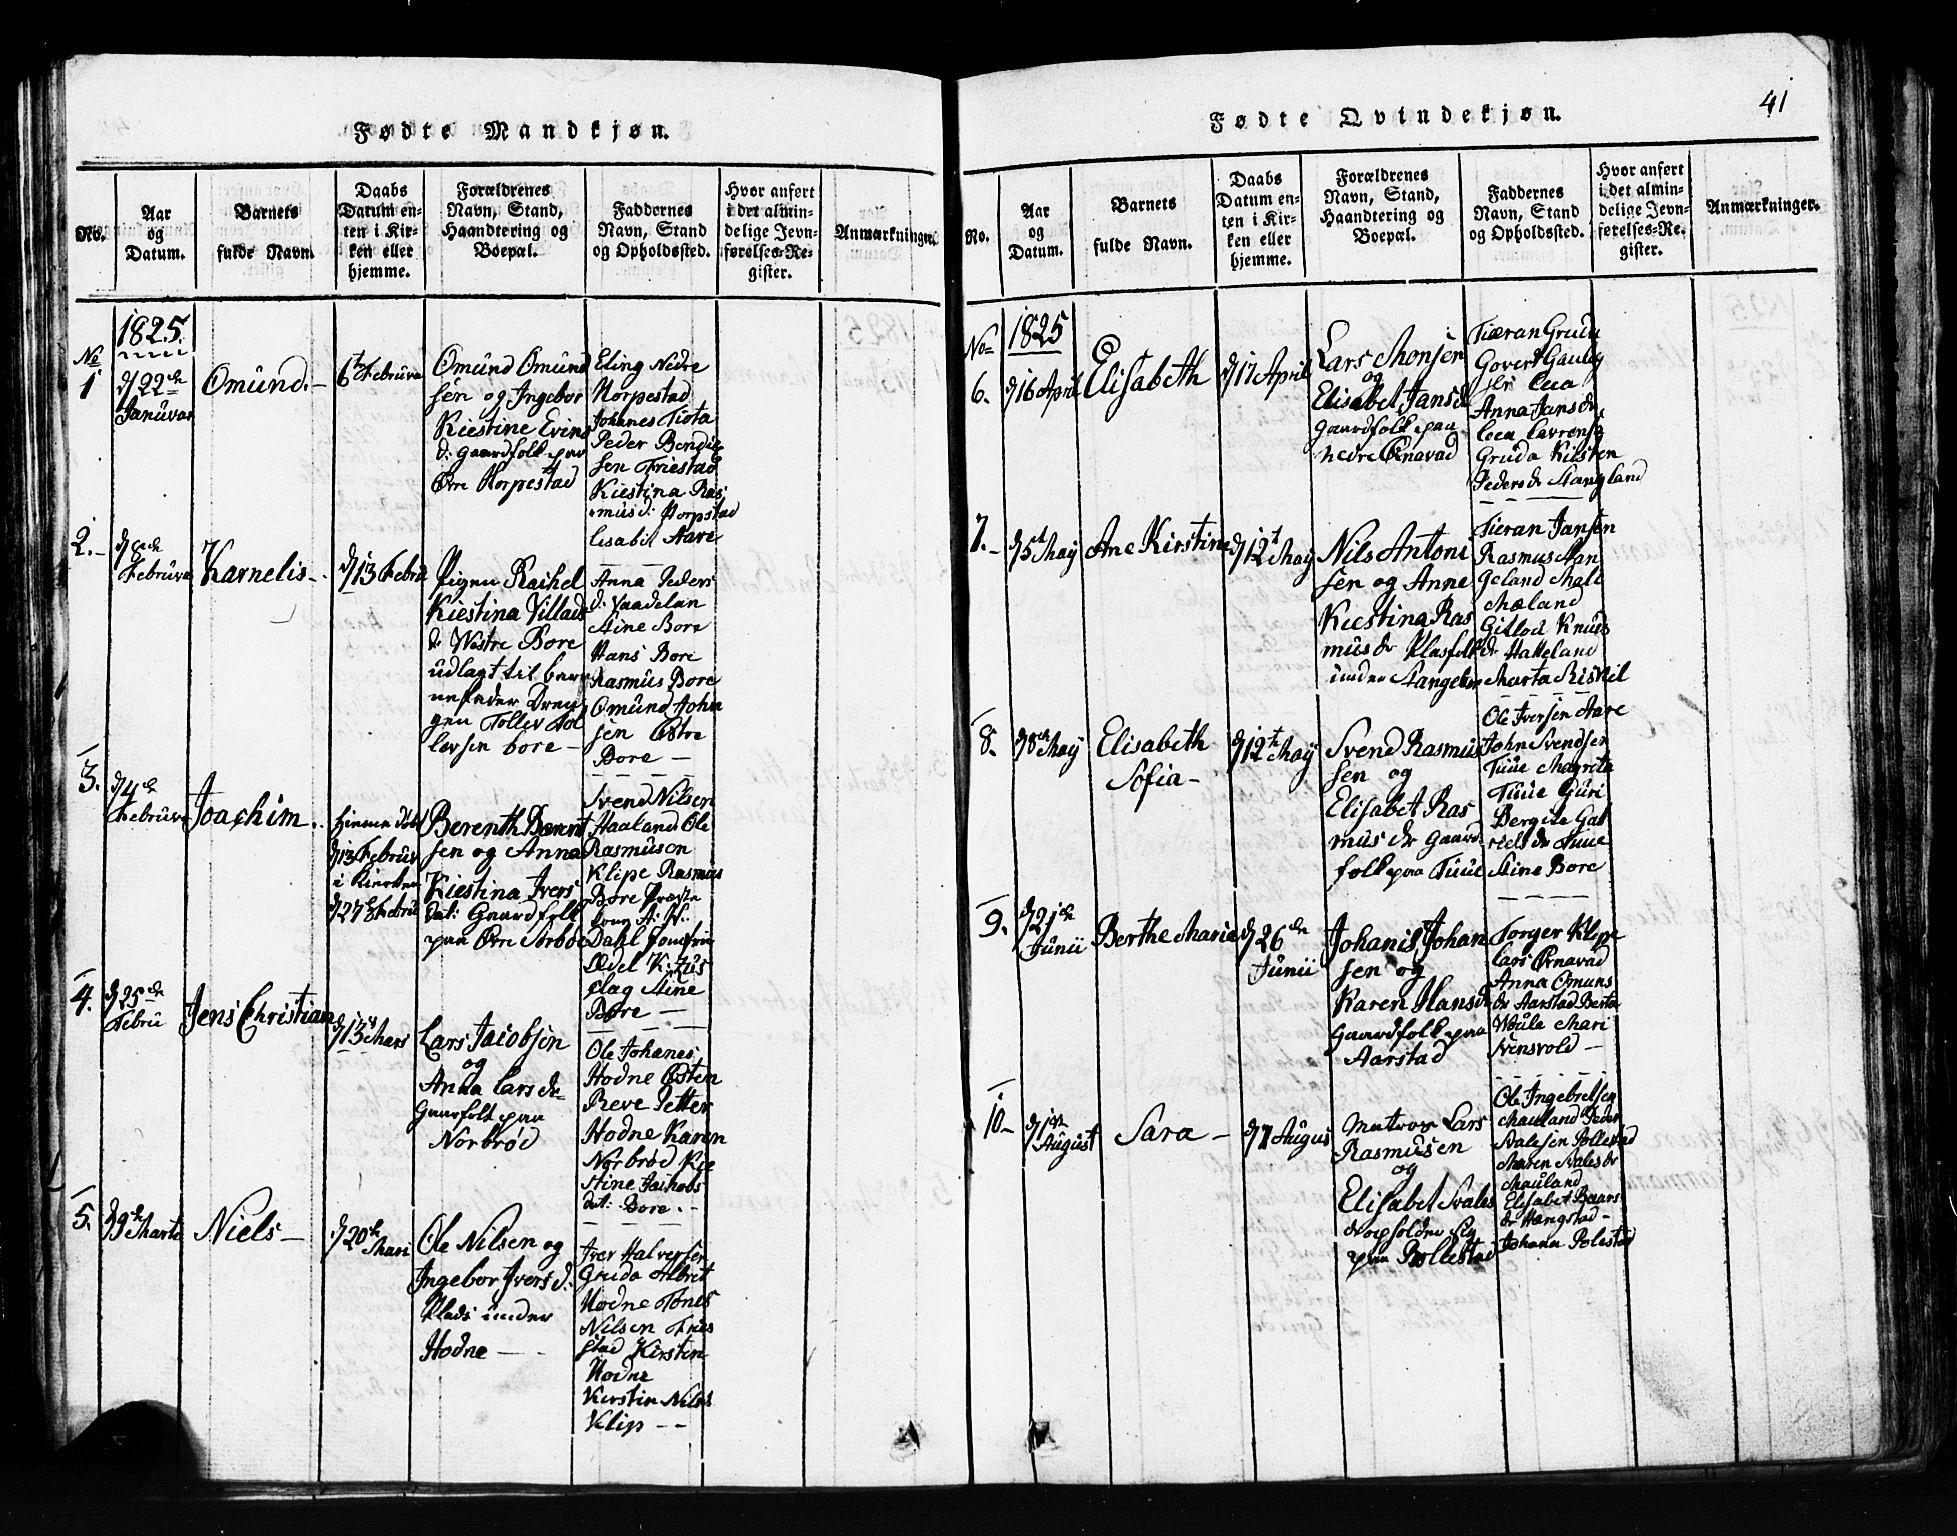 Fødte Mandkjøn.
No.
Aar
og
Datum.
Barnets
fulde Navn.
Daabs
Datum en-
ten i Kir-
ken eller
hjemme.
Forældrenes
Navn, Stand,
Haandtering og
Boepæl.
Faddernes
Navn, Stand
og Opholdssted.
Hvor anført
i det almin-
delige Jevn-
førelses-Re-
gister.
Anmærkninger.
1825
No
1
d 22de
Januvar
Omund.
6te Februva
Omund Omund
sen og Ingebor
Kiestine Evins
d: gaardfolk paa
Øre Horpestad
Eling Nedre
Horpestad
Johanes Tiøta
Peder Bendic
sen Friestad
Kiestina Ras
musd: Horpstad
Lisabet Aare
2.
d 8de
Februva
Karnelis
d 13 Febru
Pigen Rachel
Kiestina Villads
dr Westre Bore
udlagt til barn
nefader Dren
gen Toller Tol
lersen bore
Anna Peders
d: Vaadelan
Stine Bore
Hans Bore
Rasmus Bore
Omund John
sen Østre
Bore
3.
d 4de
Februva
Joachim
hjemme døbt
d 13 Februv
i Kirken
d 27de Febru
Berenth Berent
sen og Anna
Kiestina Ivers
Dat: Gaardfolk
paa Øre Sørbøe
Svend Nilsen
Haaland Ole
Rasmusen
Klipe Rasmus
Bore
Dahl Jomfrue
Ædel K:
Stine
Bore
4.
d 25de
Febru
Jens Christian
d 13 Mars
Lars Jacobsen
og
Anna Lars dr
Gaarfolk paa
Norbrød
Ole Johanes
Hodne Østen
Reve Petter
Hodne Karen
Norbrød Kie
stine Jachobs
dat: Bore
5.
d 9de Marts
Niels
d 20de Mars
Ole Nilsen og
Ingebor Ivers d:
Plads under
Hodne
Iver Halversen
Gruda Albret
Hodne Tønes
Nilsen Fries
stad Kirsten
Hodne
Kirstin Nilsd
Klip
41
Fødte Qvindekjøn.
No.
Aar
og
Datum.
Barnets
fulde Navn.
Daabs
Datum en-
ten i Kir-
ken eller
hjemme.
Forældrenes
Navn, Stand,
Haandtering og
Boepæl.
Faddernes
Navn, Stand
og Opholdssted.
Hvor anført
i det almin-
delige Jevn-
førelses-Re-
gister.
Anmærkninger.
No
1825
6.
d 16 April
Elisabeth
d 17 April
Lars Monsen
og
Elisabet Jansd
Gaardfolk paa
nedre Ørnavad
Tieran Gruda
Govert
Anna Jans dr
Gruda Kirsten
Peders dr Stangland
7.
d 5t May
Ane Kirstine
d 12t May
Nils Antoni
sen og Anne
Kiestina Ras
mus dr Plasfolk
under Stangelan
Tieran Jansen
Rasmus Stan
geland Mall
Mæland
Gitlou Knuds
dr Hatteland
Marta Riskil
8.
d 8de May
Elisabeth
Sofia
d 12te May
Svend Rasmus
sen og
Elisabet Ras
mus dr gaard
folk paa Tuue
Ole Iversen Aare
John Svendsen
Tuue Magreta
Tuue Guri
Bergite Gab
riels dr Tuue
Stine Bore
9.
d 21de
Junii
Berthe Marie
d 26de
Junii
Johanis Johan
sen og
Karen Hansd
Gaardfolk paa
Aarstad
Torger Klippe
Lars Ørnavad
Anna Omuns
dr Aarstad Berta
Woula Mari
Svensvold
10
d 1st
August
Sara
d 7 Augus
Matros Lars
Rasmusen
og
Elisabet Svales
dr opholdne sig
paa Pollestad
Ole Ingebretsen
Mauland Peder
Svalesen Pollestad
Maren Svales dr
Mauland
Elisabet Baars
dr Hængstad
Johana Polestad